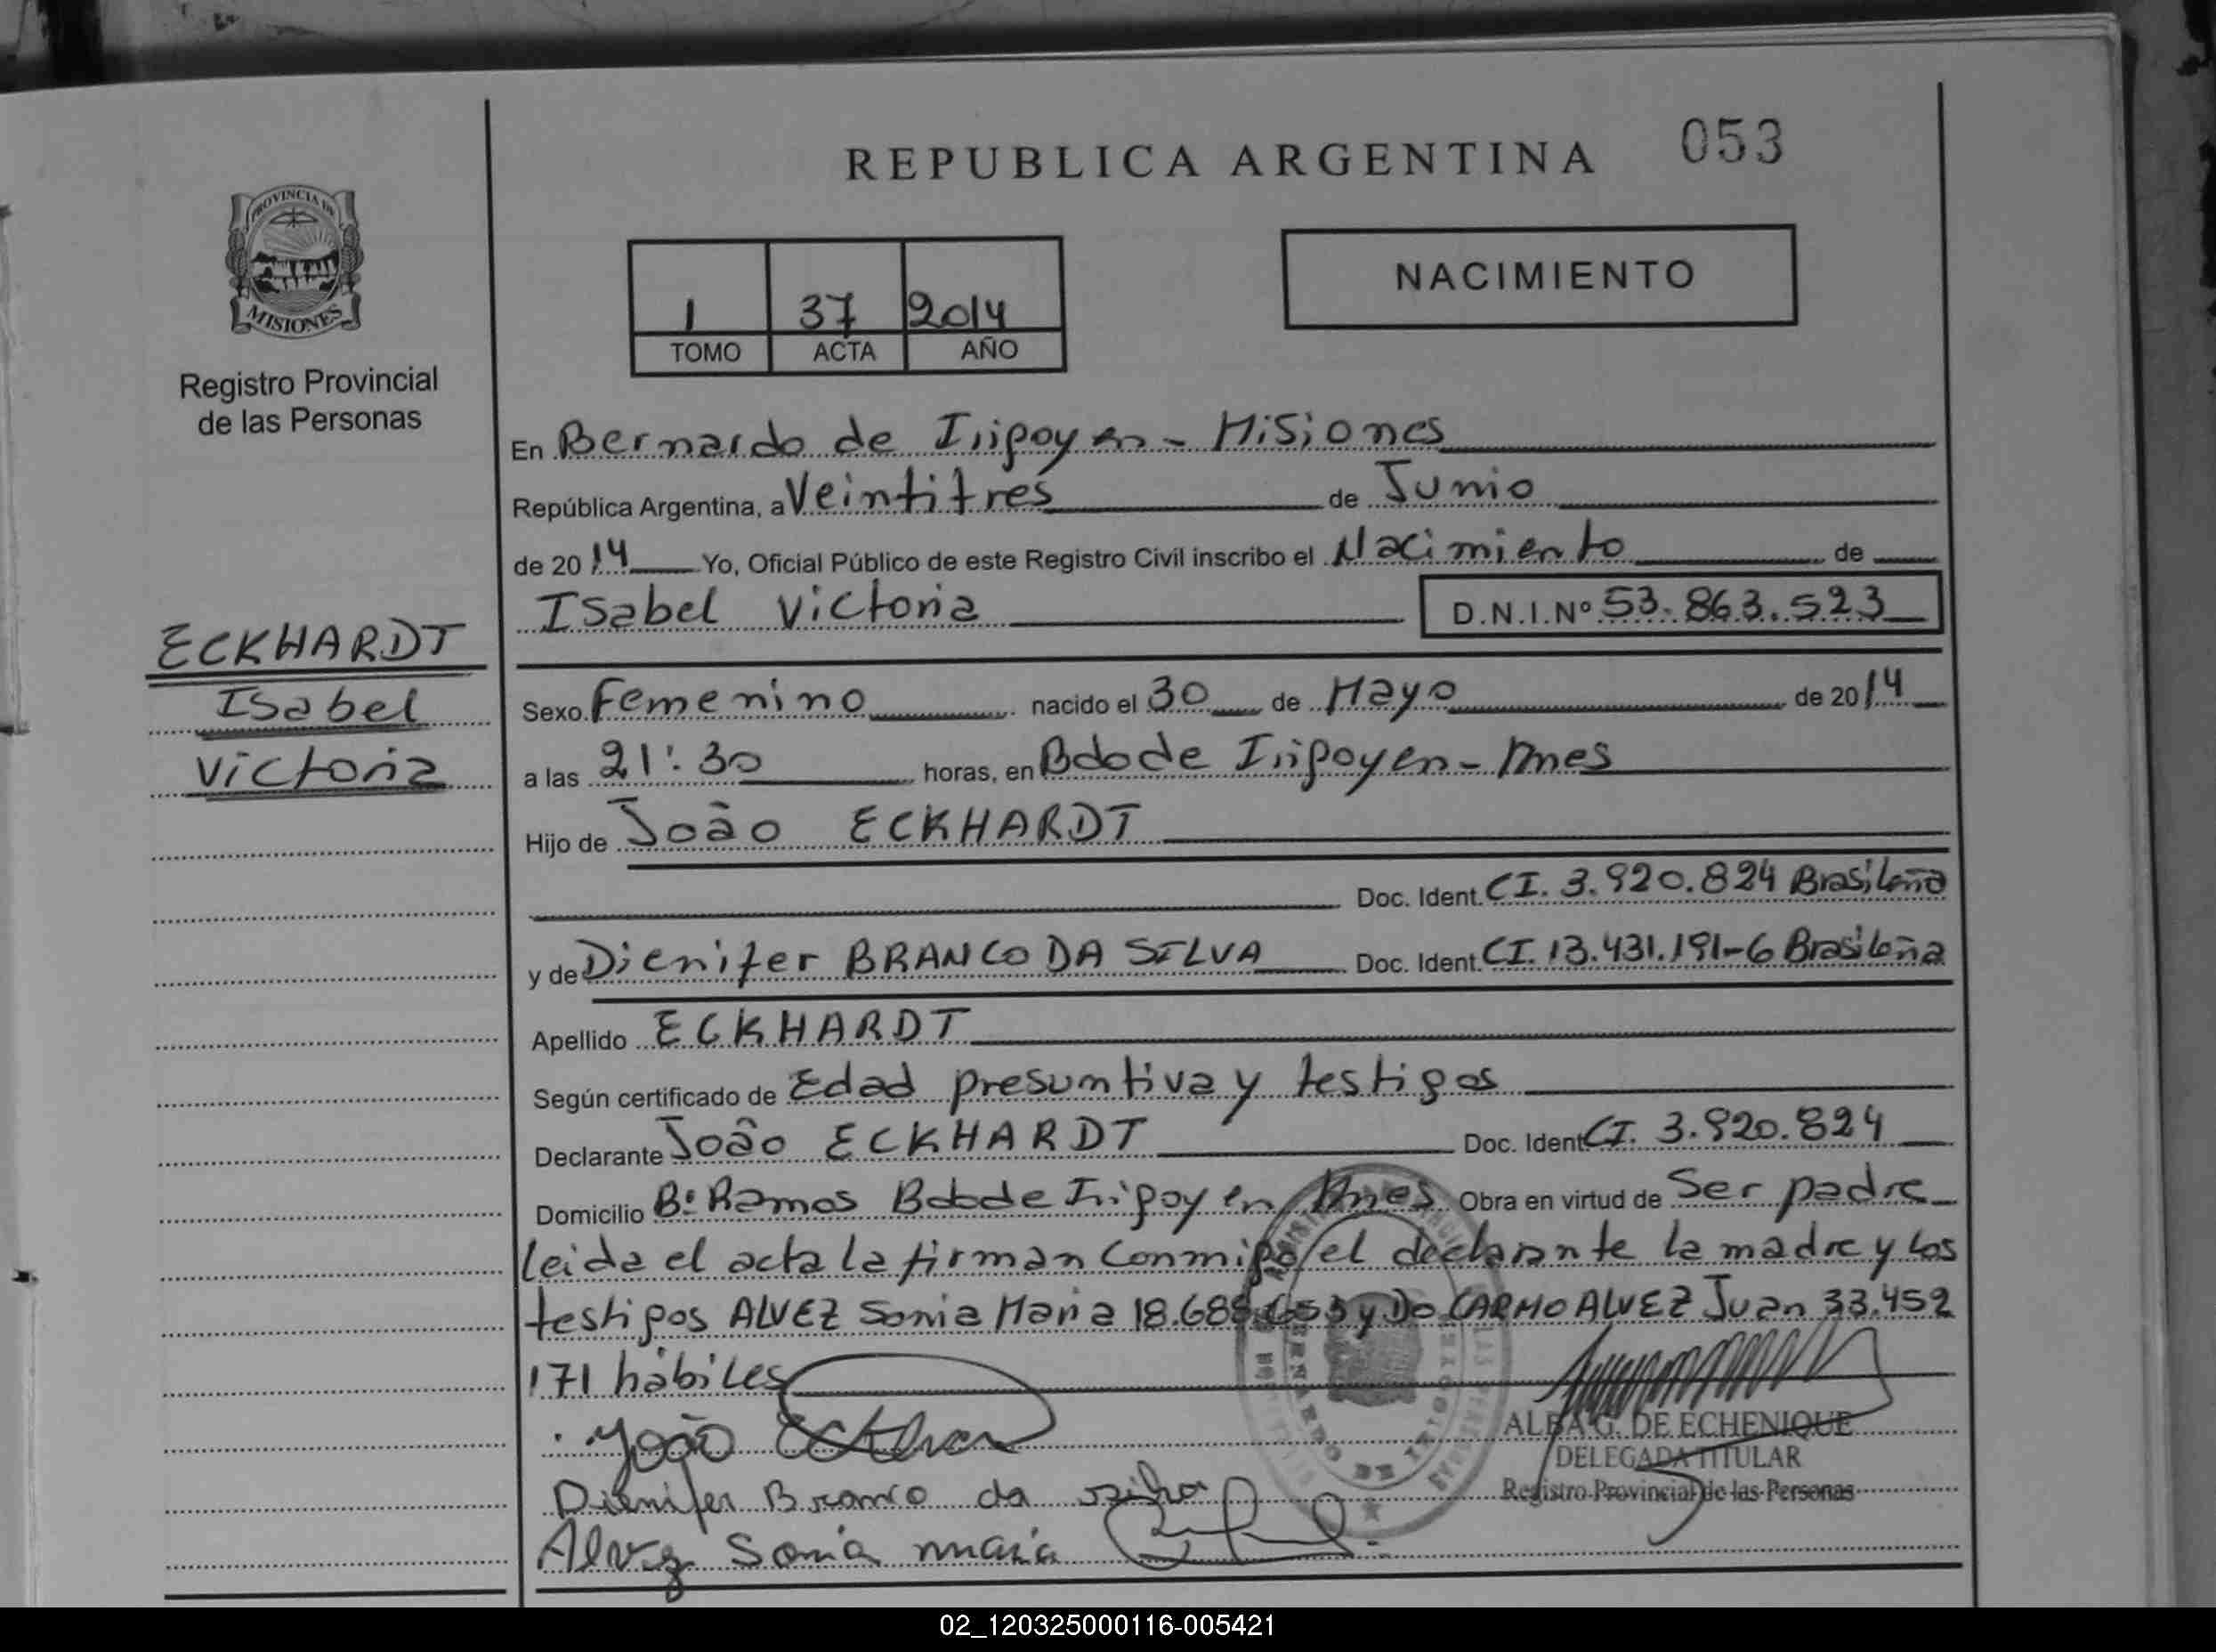 REPUBLICA ARGENTINA 053
PROVINCIA DE
MISIONES
Registro Provincial
de las Personas
1 37 2014
TOMO ACTA AÑO
NACIMIENTO
En Bernardo de Irigoyen - Misiones
República Argentina, a Veintitres de Junio
de 2014 Yo, Oficial Público de este Registro Civil inscribo el Nacimiento de
Isabel Victoria D.N.I.Nº 53.863.523
ECKHARDT
Isabel
Victoria
Sexo Femenino nacido el 30 de Mayo de 2014
a las 21:30 horas, en Bdo de Irigoyen - Mnes
Hijo de João ECKHARDT
Doc. Ident. CI. 3.920.824 Brasileña
y de Dienifer BRANCO DA SILVA Doc. Ident. CI. 13.431.191-6 Brasileña
Apellido ECKHARDT
Según certificado de Edad presuntiva y testigos
Declarante João ECKHARDT Doc. Ident CI. 3.920.824
Domicilio Bº Ramos Bdo de Irigoyen Mnes Obra en virtud de Ser padre
leida el acta la firman conmigo el declarante la madre y los
testigos ALVEZ Sonia Maria y DO CARMO ALVEZ Juan 33.452
171 hábiles
João
ALBA G. DE ECHENIQUE
DELEGADA TITULAR
Registro Provincial de las Personas
Dienifer Branco da
Alvez Sonia maria
02_120325000116-005421